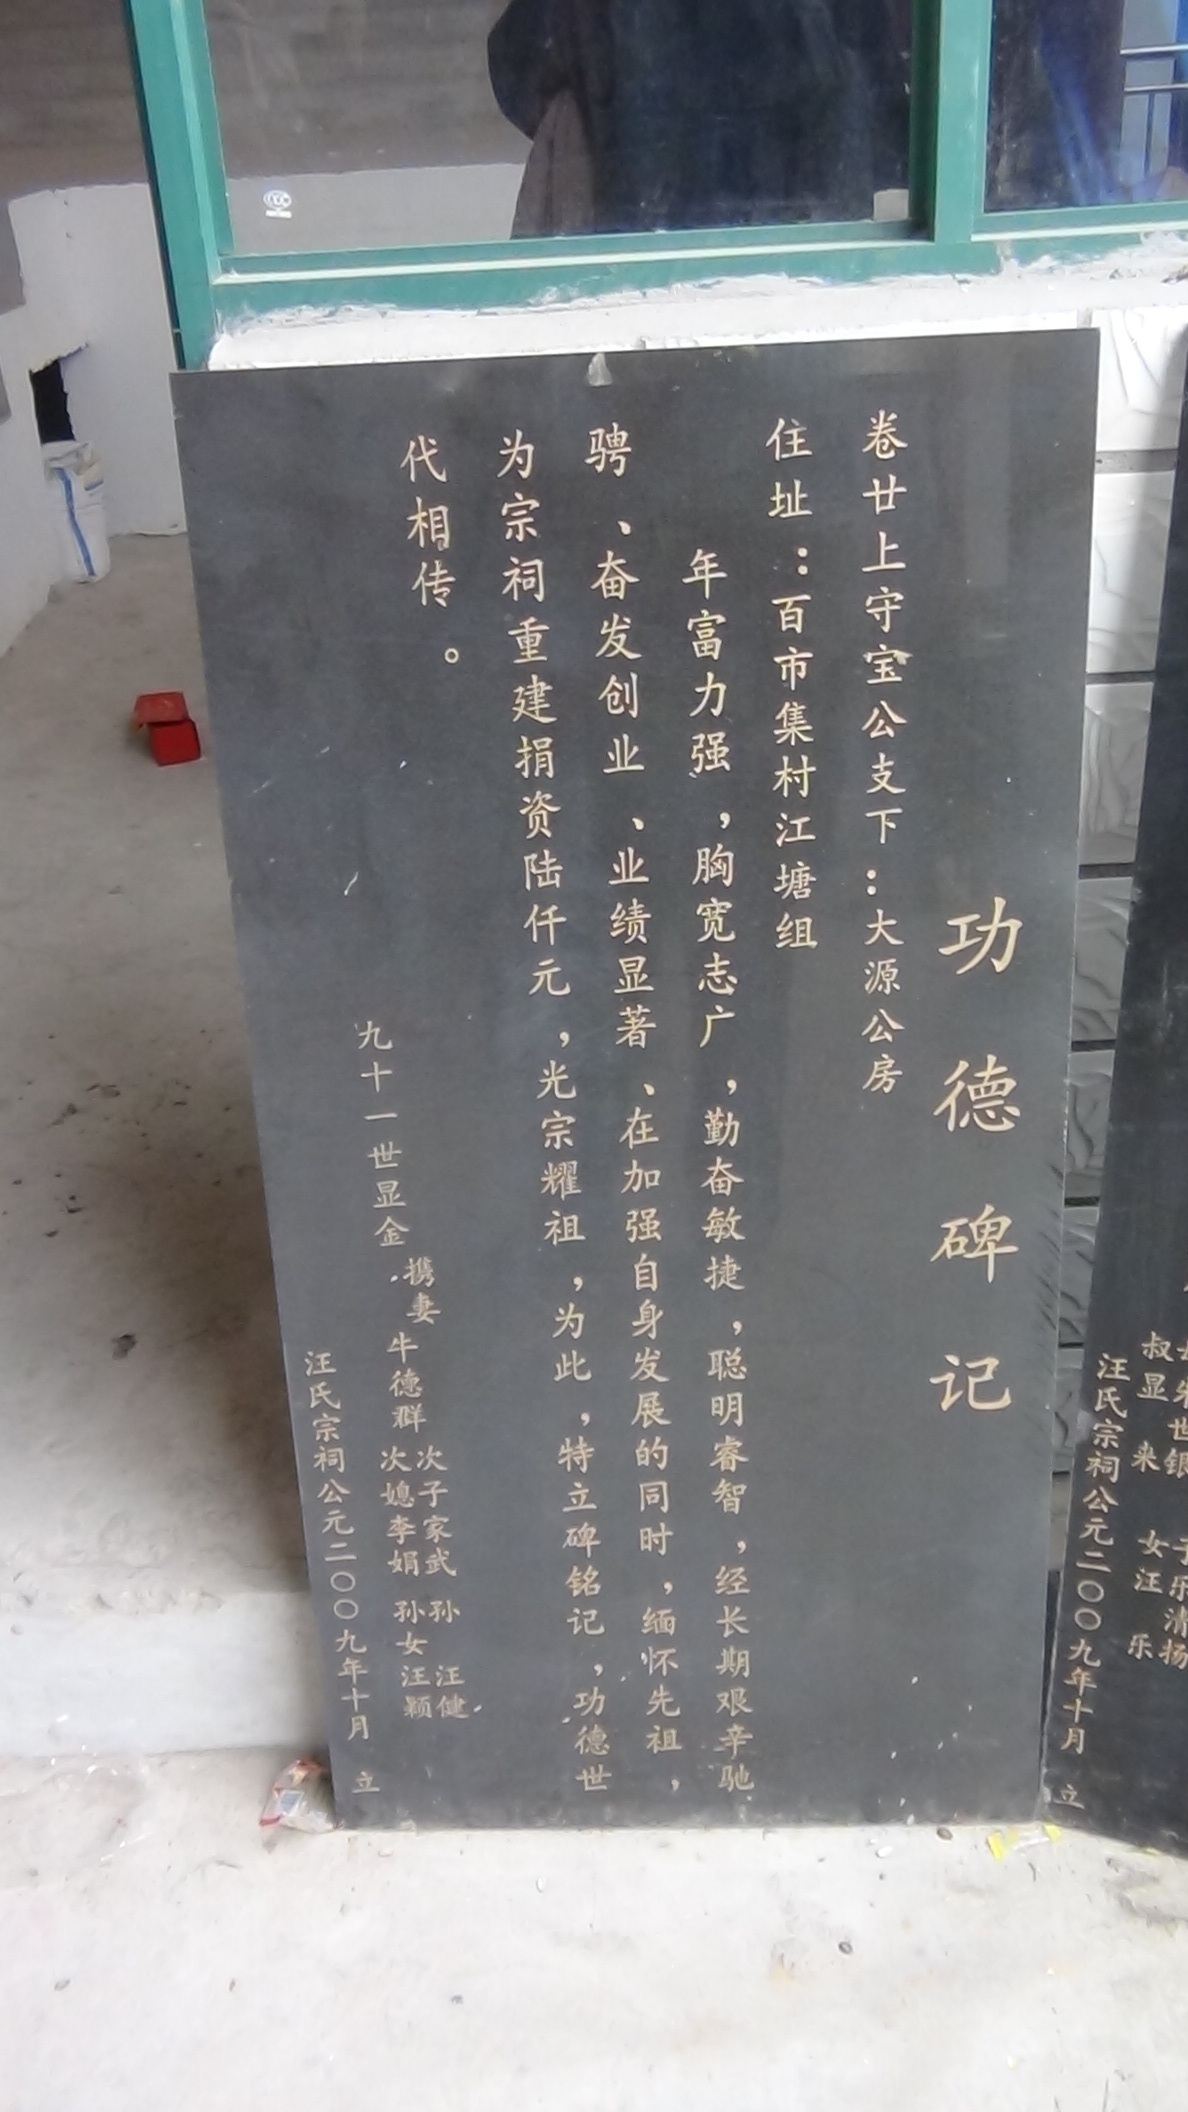 功德碑记
卷廿上守宝公支下：大源公房
住址：百市集村江塘组
年富力强，胸宽志广，勤奋敏捷，聪明睿智，经长期艰辛驰
骋、奋发创业、业绩显著、在加强自身发展的同时，缅怀先祖，
为宗祠重建捐资陆仟元，光宗耀祖，为此，特立碑铭记，功德世
代相传。
九十一世显金 携妻 牛德群
次子家武 孙 汪健
次媳李娟 孙女汪颖
汪氏宗祠公元二〇〇九年十月 立
子乐清扬
叔显来 女汪乐
汪氏宗祠公元二〇〇九年十月 立